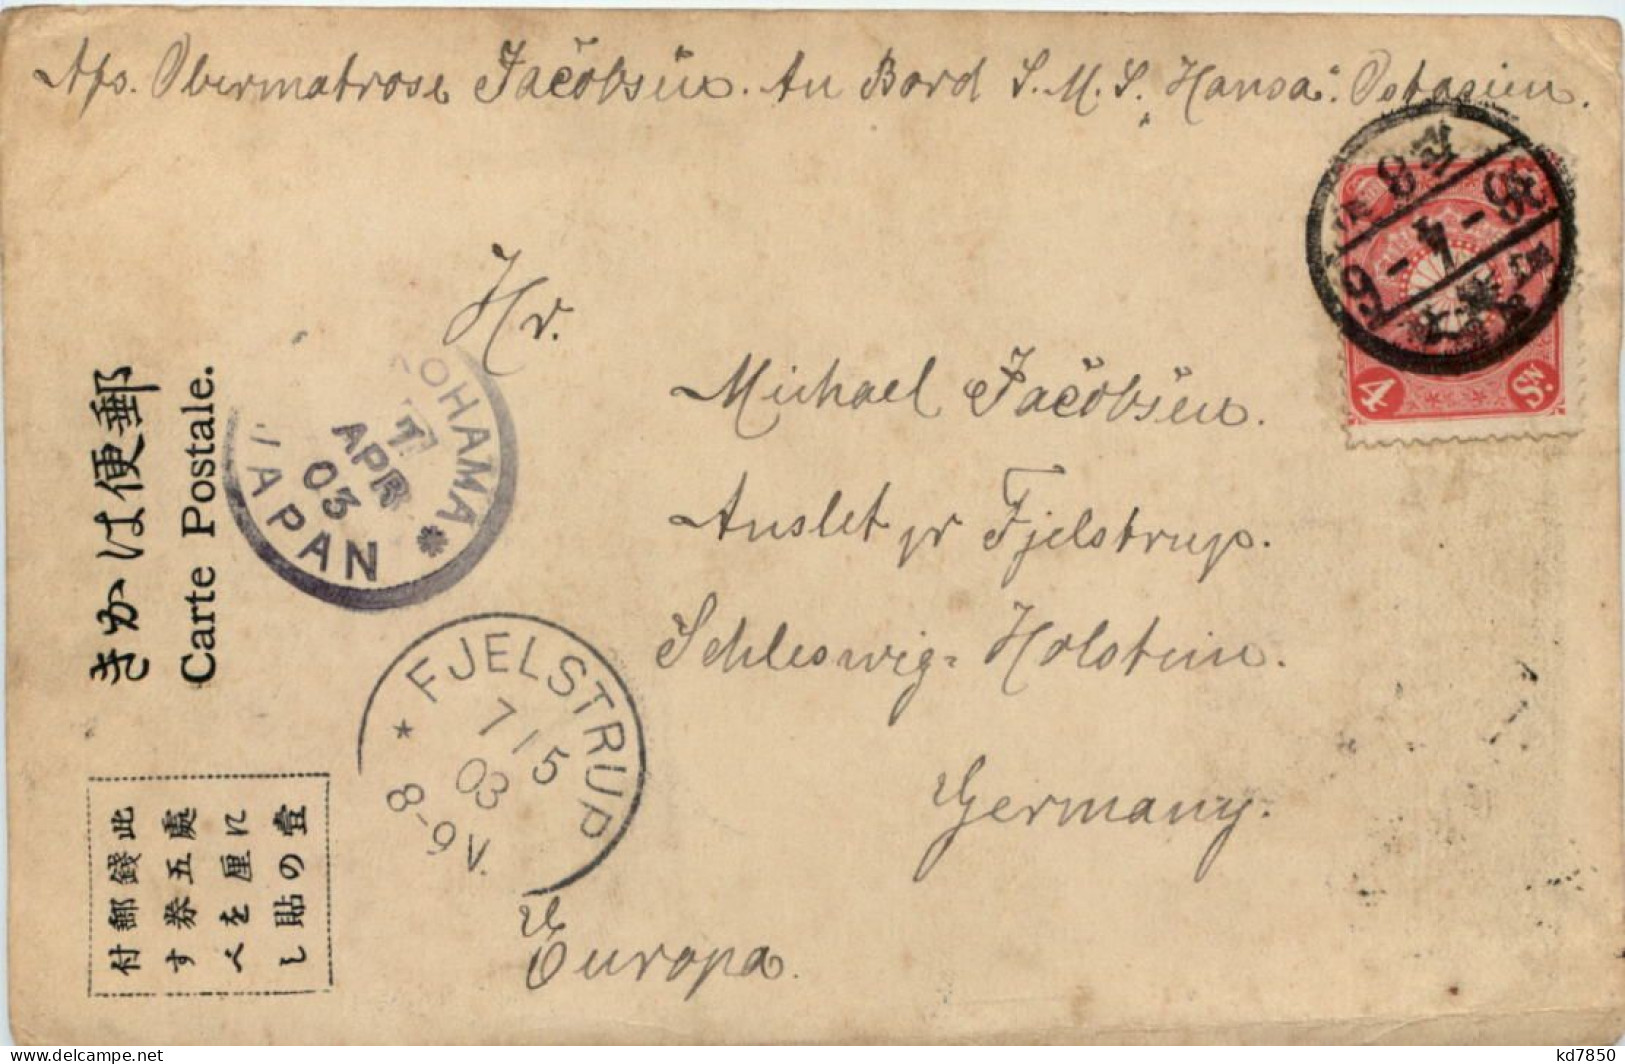 Afs. Obermatrose Jacobsen. An Bord S.M.S. "Hansa". Ostasien.
Hr.
Michael Jacobsen.
Anslet pr Fjelstrup.
Schleswig-Holstein.
Germany.
Europa.
郵便はかき
Carte Postale.
此處に壹
錢五厘の
郵券を貼
付すべし
YOHAMA
APR
03
JAPAN
FJELSTRUP
7/5
03
8-9V.
4 Sn.
36-4-
delcampe.net
kd7850